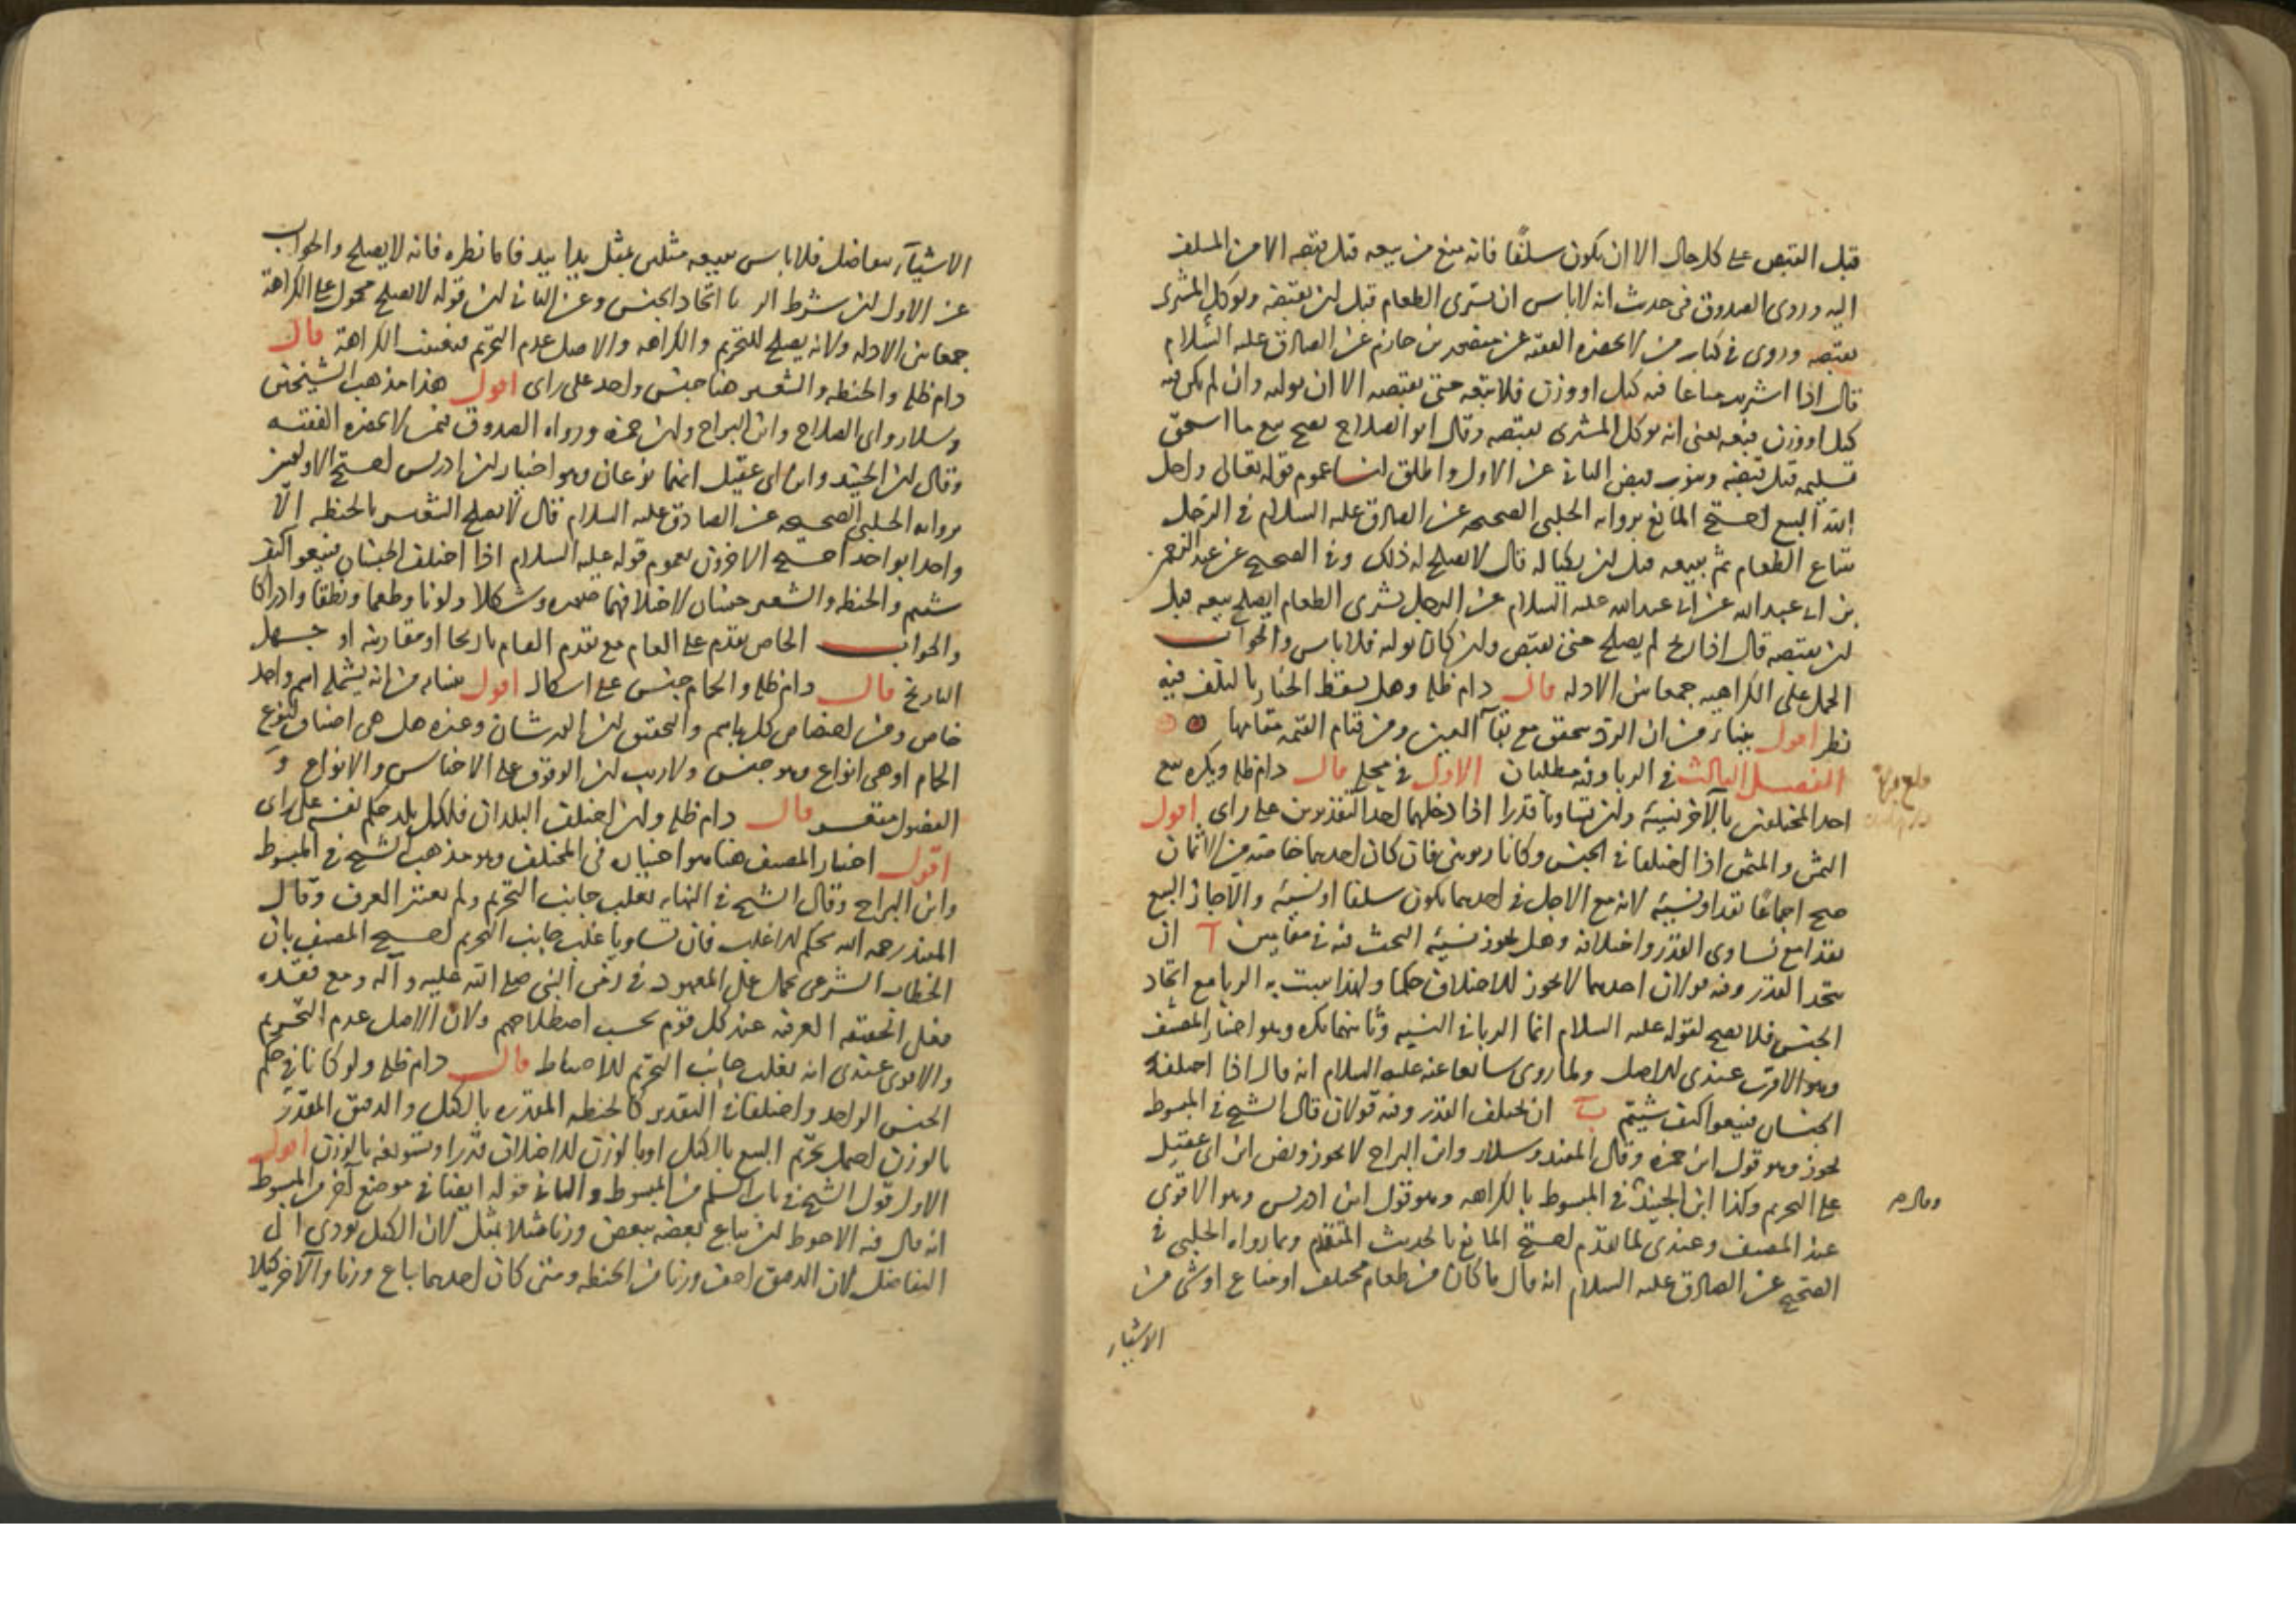 قبل القبض على كل حال الا ان يكون سلفًا فانه منع من بيعه قبل قبضه الا من المسلف
اليه وروى الصدوق فى حديث انه لا باس ان يشترى الطعام قبل ان يقبضه ويوكل المشترى
بقبضه وروى فى كتاب من لا يحضره الفقيه عن منصور بن حازم عن الصادق عليه السلام
قال اذا اشتريت متاعا فيه كيل او وزن فلا تبعه حتى تقبضه الا ان توليه وان لم يكن فيه
كيل او وزن فبعه يعنى انه يوكل المشترى بقبضه وقال ابو الصلاح يصح بيع ما استحق
تسليمه قبل قبضه وينوب قبض الثانى عن الاول واطلق لنا عموم قوله تعالى واحل
الله البيع احتج المانع برواية الحلبى الصحيحه عن الصادق عليه السلام فى الرجل
يبتاع الطعام ثم يبيعه قبل ان يكتاله قال لا يصلح له ذلك وفى الصحيح عن عبد الرحمن
بن ابى عبدالله عن ابى عبدالله عليه السلام عن الرجل يشترى الطعام ايصلح بيعه قبل
ان يقبضه قال اذا ربح لم يصلح حتى يقبض وان كان توليه فلا باس والجواب
الحمل على الكراهيه جمعا بين الادله قال دام ظله وهل يسقط الخيار بالتلف فيه
نظر اقول ينشا من ان الرد يتحقق مع بقآء العين ومن قيام القيمه مقامها
الفصل الثالث فى الربا وفيه مطلبان الاول فى محله قال دام ظله ويكره بيع
احد المختلفين بالآخر نسيئة وان تساويا قدرا اذا دخلهما احد التقديرين على راى اقول
الثمن والمثمن اذا اختلفا فى الجنس وكانا ربويين فان كان احدهما خاصة من الاثمان
صح اجماعًا نقدا ونسيئة لانه مع الاجل فى احدهما يكون سلفا او نسيئة والا جاز البيع
نقدا مع تساوى القدر واختلافه وهل يجوز نسيئة البحث فيه فى مقامين آ ان
يتحد القدر وفيه قولان احدهما لا يجوز للاختلاف حكما ولهذا يثبت به الربا مع اتحاد
الجنس فلا يصح لقوله عليه السلام انما الربا فى النسيه وثانيهما يكره وهو اختيار المصنف
وهو الاقرب عندى للاصل ولما روى سابقا عنه عليه السلام انه قال اذا اختلف
الجنسان فبيعوا كيف شيتم ب ان يختلف القدر وفيه قولان قال الشيخ فى المبسوط
يجوز وهو قول ابن حمزه وقال المفيد وسلار وابن البراج لا يجوز ونص ابن ابى عقيل
على التحريم وكذا ابن الجنيد فى المبسوط بالكراهه وهو قول ابن ادريس وهو الاقوى
عند المصنف وعندى لما تقدم احتج المانع بالحديث المتقدم وبما رواه الحلبى فى
الصحيح عن الصادق عليه السلام انه قال ما كان من طعام مختلف او متاع او شى من
الاشياء
وقال
الاشيآء يتفاضل فلا باس ببيعه مثلين بمثل يدا بيد فاما نظره فانه لا يصلح والجواب
عن الاول ان شرط الربا اتحاد الجنس وعن الثانى ان قوله لا يصلح محمول على الكراهة
جمعا بين الادله ولانه يصلح للتحريم والكراهه والاصل عدم التحريم فتعينت الكراهة قال
دام ظله والحنطه والشعير هنا جنس واحد على راى اقول هذا مذهب الشيخين
وسلار وابى الصلاح وابن البراج وابن حمزه ورواه الصدوق فى من لا يحضره الفقيه
وقال ابن الجنيد وابن ابى عقيل انهما نوعان وهو اختيار ابن ادريس احتج الاولون
برواية الحلبى الصحيحه عن الصادق عليه السلام قال لا يصلح الشعير بالحنطه الّا
واحدا بواحد احتج الاخرون بعموم قوله عليه السلام اذا اختلف الجنسان فبيعوا كيف
شيتم والحنطه والشعير جنسان لاختلافهما صوره وشكلا ولونا وطعما ونطقا وادراكا
والجواب الخاص يقدم على العام مع تقدم العام تاريخا او مقارنته او جهل
التاريخ قال دام ظله والحمام جنس على اشكال اقول ينشا من انه يشمله اسم واحد
خاص ومن اختصاص كل باسم والتحقيق ان الورشان وغيره هل هى اصناف لنوع
الحمام او هى انواع وهو جنس ولا ريب ان الوقوف على الاجناس والانواع و
الفصول متعسر قال دام ظله وان اختلفت البلدان فلكل بلد حكم نفسه على راى
اقول اختيار المصنف هنا هو اختياره فى المختلف وهو مذهب الشيخ فى المبسوط
وابن البراج وقال الشيخ فى النهايه يغلب جانب التحريم ولم يعتبر العرف وقال
المفيد رحمه الله يحكم للاغلب فان تساويا غلب جانب التحريم احتج المصنف بان
الخطاب الشرعى يحمل على المعهود فى زمن النبى صلى الله عليه وآله ومع فقده
فعلى الحقيقه العرفيه عند كل قوم بحسب اصطلاحهم ولان الاصل عدم التحريم
والاقوى عندى انه يغلب جانب التحريم للاحتياط قال دام ظله ولو كانا فى حكم
الجنس الواحد واختلفا فى التقدير كالحنطه المقدره بالكيل والدقيق المقدر
بالوزن احتمل تحريم البيع بالكيل او بالوزن للاختلاف قدرا وتسويغه بالوزن اقول
الاول قول الشيخ فى باب السلم من المبسوط والثانى قوله ايضا فى موضع آخر من المبسوط
انه قال فيه الاحوط ان يباع بعضه ببعض وزنا مثلا بمثل لان الكيل يودى الى
التفاضل لان الدقيق اخف وزنا من الحنطه ومتى كان احدهما يباع وزنا والآخر كيلا